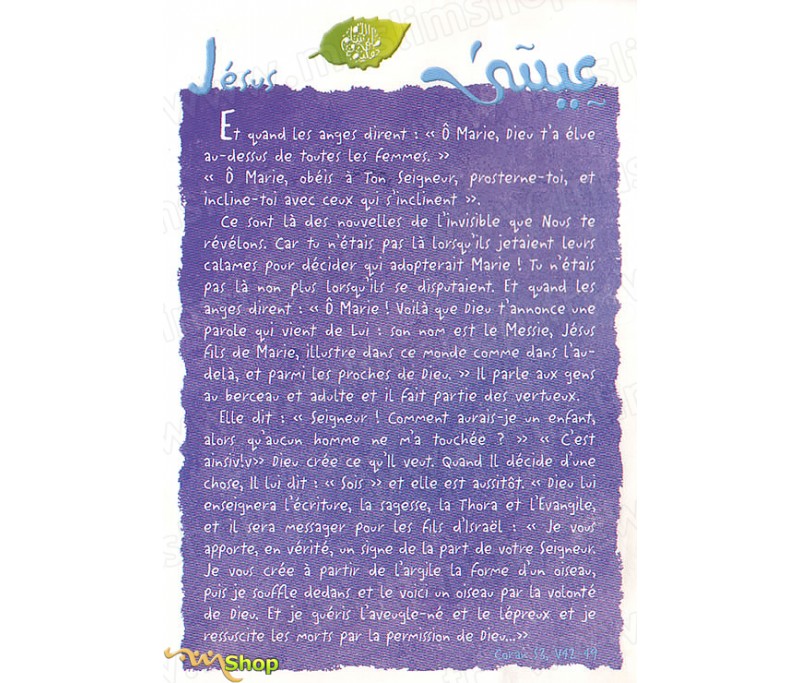 Jésus
عيسى
Et quand les anges dirent : « Ô Marie, Dieu t'a élue
au-dessus de toutes les femmes. »
« Ô Marie, obéis à Ton Seigneur, prosterne-toi, et
incline-toi avec ceux qui s'inclinent ».
Ce sont là des nouvelles de l'invisible que Nous te
révélons. Car tu n'étais pas là lorsqu'ils jetaient leurs
calames pour décider qui adopterait Marie ! Tu n'étais
pas là non plus lorsqu'ils se disputaient. Et quand les
anges dirent : « Ô Marie ! Voilà que Dieu t'annonce une
parole qui vient de Lui : son nom est le Messie, Jésus
fils de Marie, illustre dans ce monde comme dans l'au-
delà, et parmi les proches de Dieu. » Il parle aux gens
au berceau et adulte et il fait partie des vertueux.
Elle dit : « Seigneur ! Comment aurais-je un enfant,
alors qu'aucun homme ne m'a touchée ? » « C'est
ainsiv!v» Dieu crée ce qu'Il veut. Quand Il décide d'une
chose, Il lui dit : « Sois » et elle est aussitôt. « Dieu lui
enseignera l'écriture, la sagesse, la Thora et l'Evangile,
et il sera messager pour les fils d'Israël : « Je vous
apporte, en vérité, un signe de la part de votre Seigneur.
Je vous crée à partir de l'argile la forme d'un oiseau,
puis je souffle dedans et le voici un oiseau par la volonté
de Dieu. Et je guéris l'aveugle-né et le lépreux et je
ressuscite les morts par la permission de Dieu...»
Coran S3, V42-49
Shop